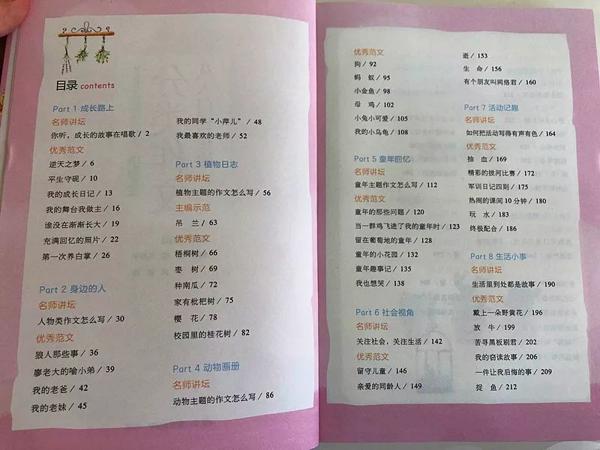 目录 contents
Part 1 成长路上
名师讲坛
你听，成长的故事在唱歌 / 2
优秀范文
逆天之梦 / 6
平生守砚 / 10
我的成长日记 / 13
我的舞台我做主 / 16
谁没在渐渐长大 / 19
充满回忆的照片 / 22
第一次养白掌 / 26
Part 2 身边的人
名师讲坛
人物类作文怎么写 / 30
优秀范文
狼人那些事 / 36
廖老大的喻小弟 / 39
我的老爸 / 42
我的老妹 / 45
我的同学“小萍儿” / 48
我最喜欢的老师 / 52
Part 3 植物日志
名师讲坛
植物主题的作文怎么写 / 56
主编示范
吊 兰 / 63
优秀范文
梧桐树 / 66
枣 树 / 69
种南瓜 / 72
家有枇杷树 / 75
樱 花 / 78
校园里的桂花树 / 82
Part 4 动物画册
名师讲坛
动物主题的作文怎么写 / 86
优秀范文
狗 / 92
蚂 蚁 / 95
小金鱼 / 98
母 鸡 / 102
小兔小可爱 / 105
我的小乌龟 / 108
Part 5 童年回忆
名师讲坛
童年主题作文怎么写 / 112
优秀范文
童年的那些问题 / 120
当一群鸡飞进了我的童年时 / 123
留在葡萄地的童年 / 128
童年的小花园 / 132
童年趣事记 / 135
我也想哭 / 138
Part 6 社会视角
名师讲坛
关注社会，关注生活 / 142
优秀范文
留守儿童 / 146
亲爱的同龄人 / 149
逝 / 153
生 命 / 156
有个朋友叫网络君 / 160
Part 7 活动记趣
名师讲坛
如何把活动写得有声有色 / 164
优秀范文
抽 血 / 169
精彩的拔河比赛 / 172
军训日记四则 / 175
热闹的课间 10 分钟 / 180
玩 水 / 183
终极配合 / 186
Part 8 生活小事
名师讲坛
生活里到处都是故事 / 190
优秀范文
戴上一朵野黄花 / 196
放 牛 / 199
苦寻黑板刷君 / 202
我的窃读故事 / 206
一件让我后悔的事 / 209
捉 鱼 / 212